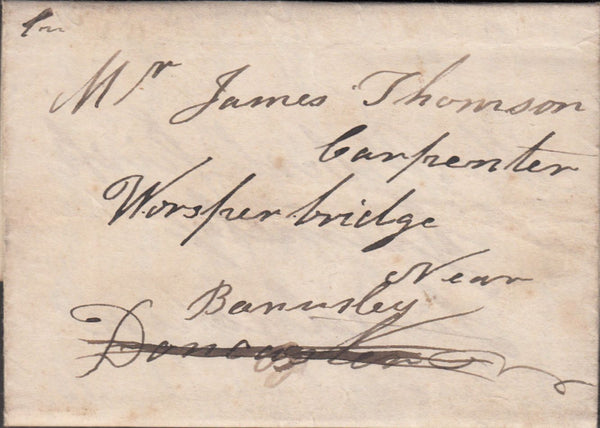 Mr James Thomson
Carpenter
Worsperbridge
Near
Barnsley
Doncaster